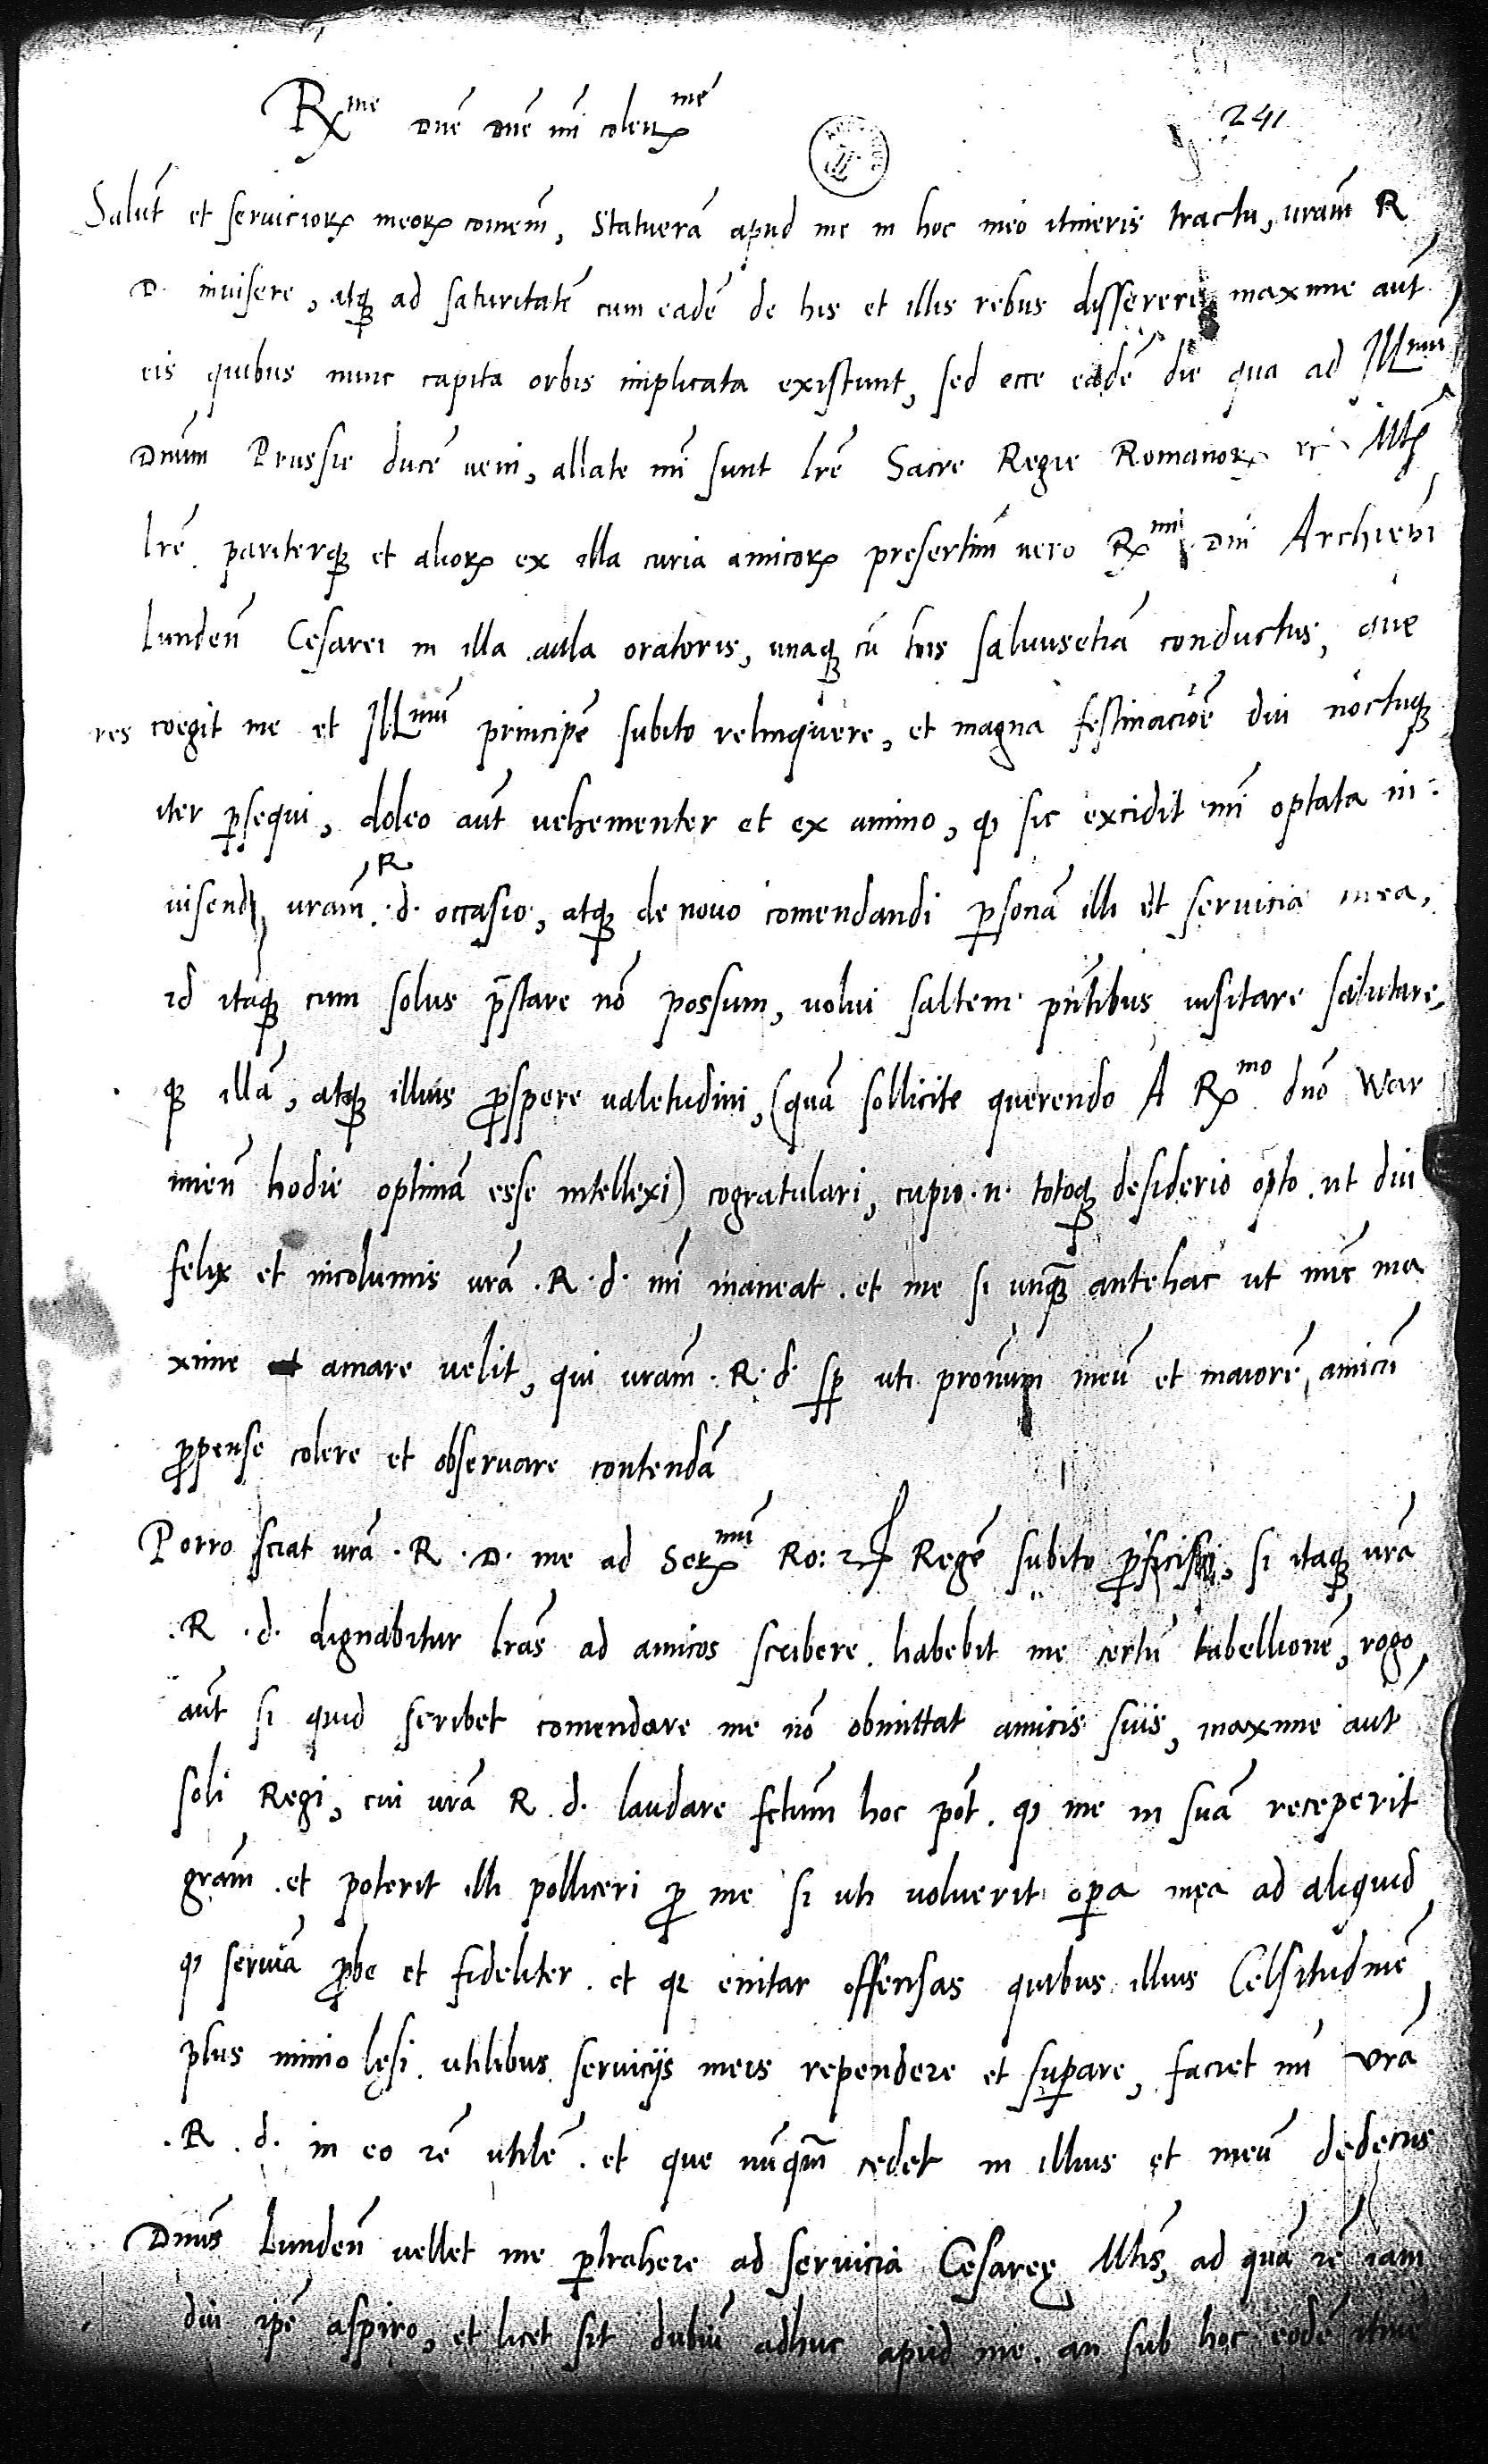 241
Rx^me dnē dnē mi colenx^mē
Salutē et seruiciorꝝ meorꝝ comenē, Statuerā apud me in hoc meo itineris tractu, vram R
D. inuisere, atqꝫ ad saturitatē cum eadē de his et illis rebus disserere maxime aut
eis quibus nunc capita orbis implicata existunt, sed ecce eadē die qua ad Ill^mum
Dnum Prussie ducē veni, allate mi sunt lrē Sacre Regie Romanorꝝ
lrē pariterqꝫ et aliorꝝ ex illa curia amicorꝝ presertim vero Rx^mi dni Archiepi
Lunden̄ Cesarei in illa aula oratoris, unaqꝫ cū lris saluusetiā conductus, que
res coegit me et Ill^mum principē subito relinquere, et magna festinacioē diu noctuqꝫ
iter ꝑsequi, doleo aut vehementer et ex animo, ꝙ sic excidit mi optata in:
uisendi vram R d. occasio, atqꝫ de nouo comendandi ꝑsonā illi et seruicia mea,
id itaqꝫ cum solus p̄stare nō possum, volui saltem pn̄tibus visitare salutare,
qꝫ illā, atqꝫ illius ꝓspere valetudini, (quā sollicite querendo A Rx^mo dno War
mien̄ hodie optimā esse intellexi) cōgratulari, cupio .n. totoqꝫ desiderio opto . ut diu
felix et incolumis vrā . R . d . mi maneat . et me si unqꝫ antehac ut nūc ma
xime amare velit, qui vram . R . d . sꝑ uti pronum meū et maiorē amicū
ꝓpense colere et obseruare contendā
Porro sciat vrā . R . D . me ad Serx^mū Ro: Regē subito ꝓficisci, si itaqꝫ vrā
. R . d . dignabitur lras ad amicos scribere . habebit me certū tabellionē, rogo
aut si quid scribet comendare me nō obmittat amicis suis, maxime aut
soli Regi, cui vrā R . d . laudare fctum hoc pōt . ꝙ me in suā receperit
gram . et poterit illi polliceri ꝓ me si uti voluerit oꝑa mea ad aliquid
ꝙ seruiā ꝓbe et fideliter . et ꝙ enitar offensas quibus illius Celsitudinē
plus minio lęsi . utilibus seruicijs meis rependere et suꝑare, faciet mi vrā
. R . d . in eo rē utilē . et que nūqm̄ cedet in illius et meū dedecus
Dnus Lunden̄ vellet me ꝑtrahere ad seruicia Cesareę Mtis, ad quā rē iam
diu ipē aspiro, et licet sit dubiū adhuc apud me . an sub hoc eodē itine